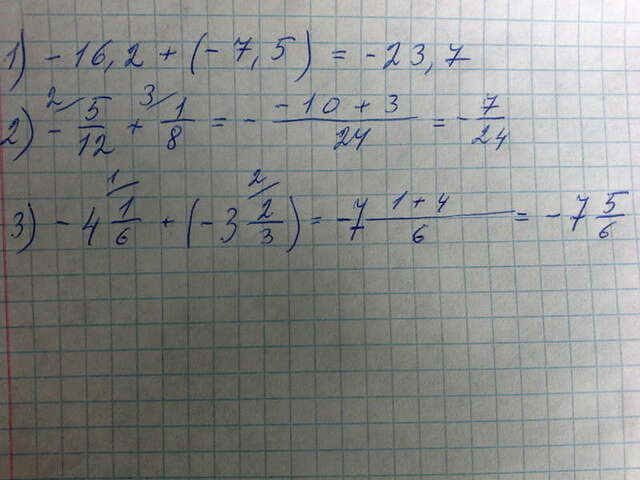 1) - 16,2 + (- 7,5) = - 23,7
2) - 5/12 (2/) + 1/8 (3/) = - (-10 + 3)/24 = - 7/24
3) - 4 1/6 (1/) + (- 3 2/3 (2/)) = - 7 (1 + 4)/6 = - 7 5/6